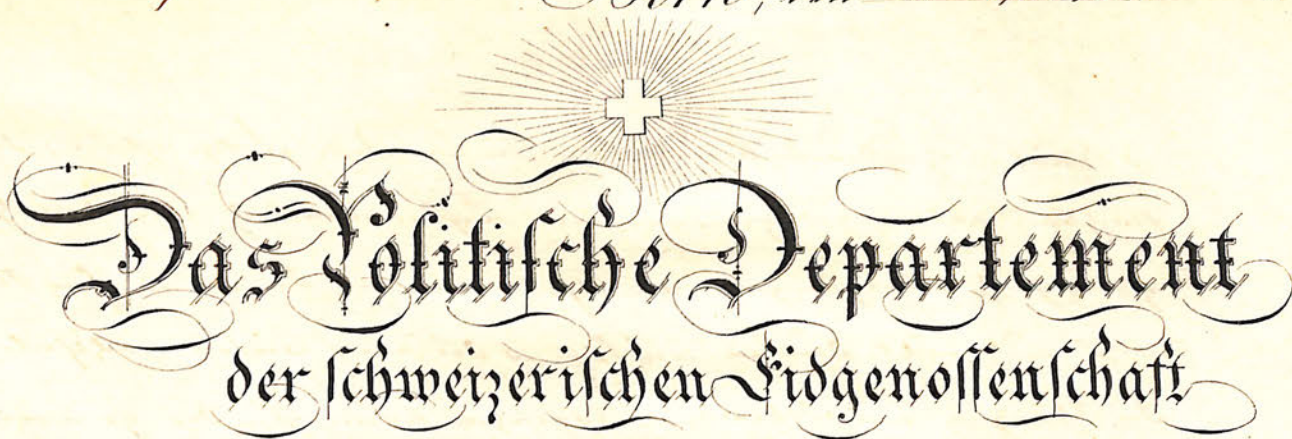 Bern, den
Das Politiſche Departement
der ſchweizeriſchen Eidgenoſſenſchaft